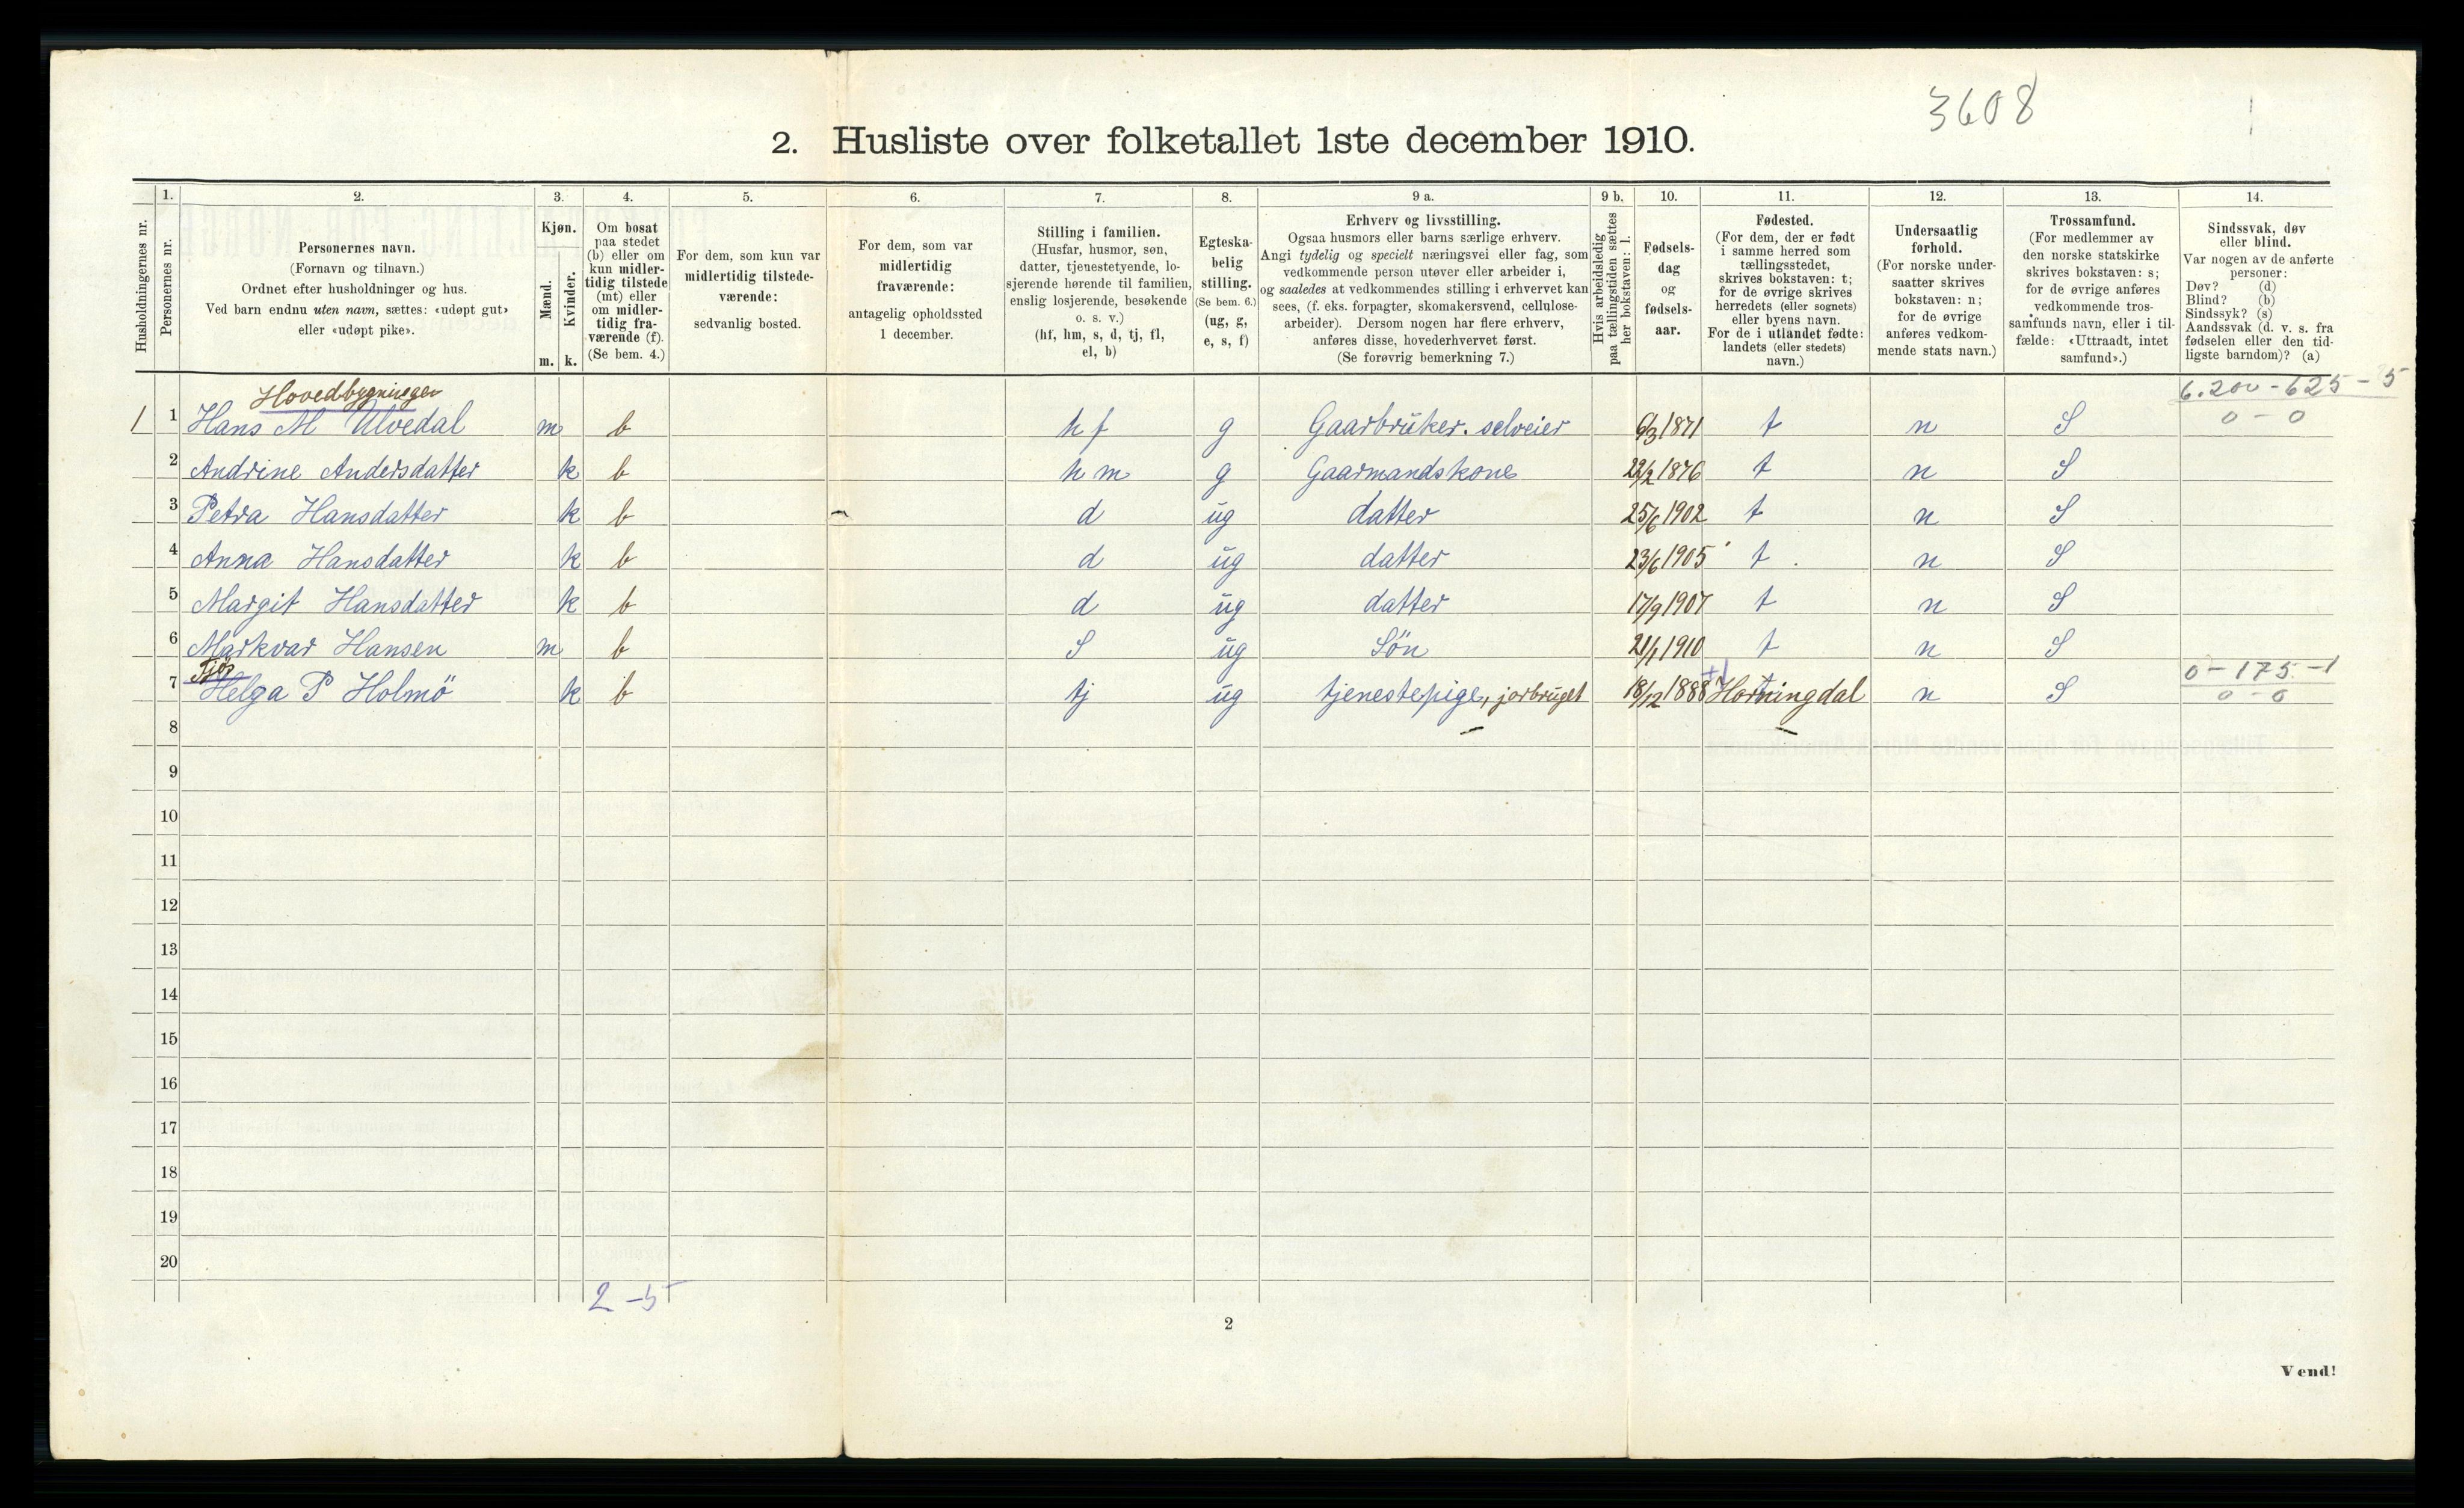 3608
2. Husliste over folketallet 1ste december 1910.
Husholdningernes nr.
1.
Personernes nr.
2.
Personernes navn.
(Fornavn og tilnavn.)
Ordnet efter husholdninger og hus.
Ved barn endnu uten navn, sættes: «udøpt gut»
eller «udøpt pike».
3.
Kjøn.
Mænd.
Kvinder.
m. k.
4.
Om bosat
paa stedet
(b) eller om
kun midler-
tidig tilstede
(mt) eller
om midler-
tidig fra-
værende (f).
(Se bem. 4.)
5.
For dem, som kun var
midlertidig tilstede-
værende:
sedvanlig bosted.
6.
For dem, som var
midlertidig
fraværende:
antagelig opholdssted
1 december.
7.
Stilling i familien.
(Husfar, husmor, søn,
datter, tjenestetyende, lo-
sjerende hørende til familien,
enslig losjerende, besøkende
o. s. v.)
(hf, hm, s, d, tj, fl,
el, b)
8.
Egteska-
belig
stilling.
(Se bem. 6.)
(ug, g,
e, s, f)
9 a.
Erhverv og livsstilling.
Ogsaa husmors eller barns særlige erhverv.
Angi tydelig og specielt næringsvei eller fag, som
vedkommende person utøver eller arbeider i,
og saaledes at vedkommendes stilling i erhvervet kan
sees, (f. eks. forpagter, skomakersvend, cellulose-
arbeider). Dersom nogen har flere erhverv,
anføres disse, hovederhvervet først.
(Se forøvrig bemerkning 7.)
9 b.
Hvis arbeidsledig
paa tællingstiden sættes
her bokstaven: l.
10.
Fødsels-
dag
og
fødsels-
aar.
11.
Fødested.
(For dem, der er født
i samme herred som
tællingsstedet,
skrives bokstaven: t;
for de øvrige skrives
herredets (eller sognets)
eller byens navn.
For de i utlandet fødte:
landets (eller stedets)
navn.)
12.
Undersaatlig
forhold.
(For norske under-
saatter skrives
bokstaven: n;
for de øvrige
anføres vedkom-
mende stats navn.)
13.
Trossamfund.
(For medlemmer av
den norske statskirke
skrives bokstaven: s;
for de øvrige anføres
vedkommende tros-
samfunds navn, eller i til-
fælde: «Uttraadt, intet
samfund».)
14.
Sindssvak, døv
eller blind.
Var nogen av de anførte
personer:
Døv? (d)
Blind? (b)
Sindssyk? (s)
Aandssvak (d. v. s. fra
fødselen eller den tid-
ligste barndom)? (a)
Hovedbygningen 6.200 - 625 - 5
1 1 Hans M Ulvedal m b hf g Gaarbruker. selveier 6/3 1871 t n S 0 - 0
2 Andrine Andersdatter k b hm g Gaarmandskone 22/2 1876 t n S
3 Petra Hansdatter k b d ug datter 25/6 1902 t n S
4 Anna Hansdatter k b d ug datter 23/6 1905 t n S
5 Margit Hansdatter k b d ug datter 17/9 1907 t n S
6 Markvar Hansen m b S ug Sön 21/1 1910 t n S
0 - 175 - 1
7 Helga P Holmö k b tj ug tjenestepige, jorbruget 18/12 1888 Horningdal n S 0 - 0
8
9
10
11
12
13
14
15
16
17
18
19
20
2 - 5
2
Vend!